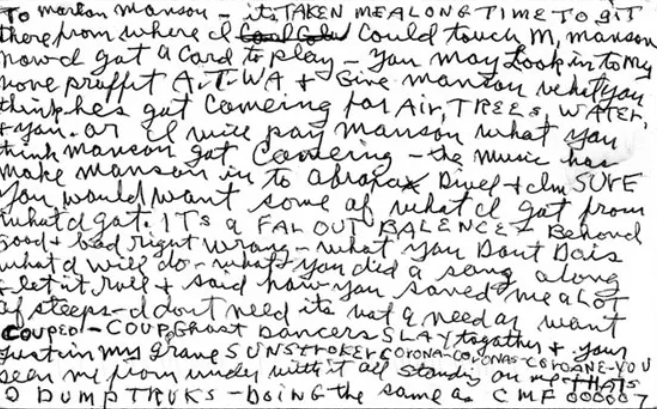 To marlon manson – its TAKEN ME A LONG TIME TO gIT
there from where I could touch M, manson
now I got a card to play – you may Look in to my
none proffit A.T.WA + Give manson what you
think hes got comeing for Air, TREES, WATER,
+ you. or I will pay manson what you
think manson got comeing – the music has
make manson in to abraxax Divel + Im SURE
you would want some of what I got from
what I got. ITS a FAL OUT BALENCE – Behond
good + bad right wrong – what you Dont Do is
what I will do – what you did a sang along
+ let it roll + said how you saved me a LOT
of steeps – I dont need its not a need or want
COUPED – COUP. Ghost Dancers SLAY together + your
just in my grave SUNSTROKER CORONA-CORONAS-COROANE-YOU
seen me from under with it all standing on me. THATS
2 DUMP TRUKS – DOING the same as CMF 000007